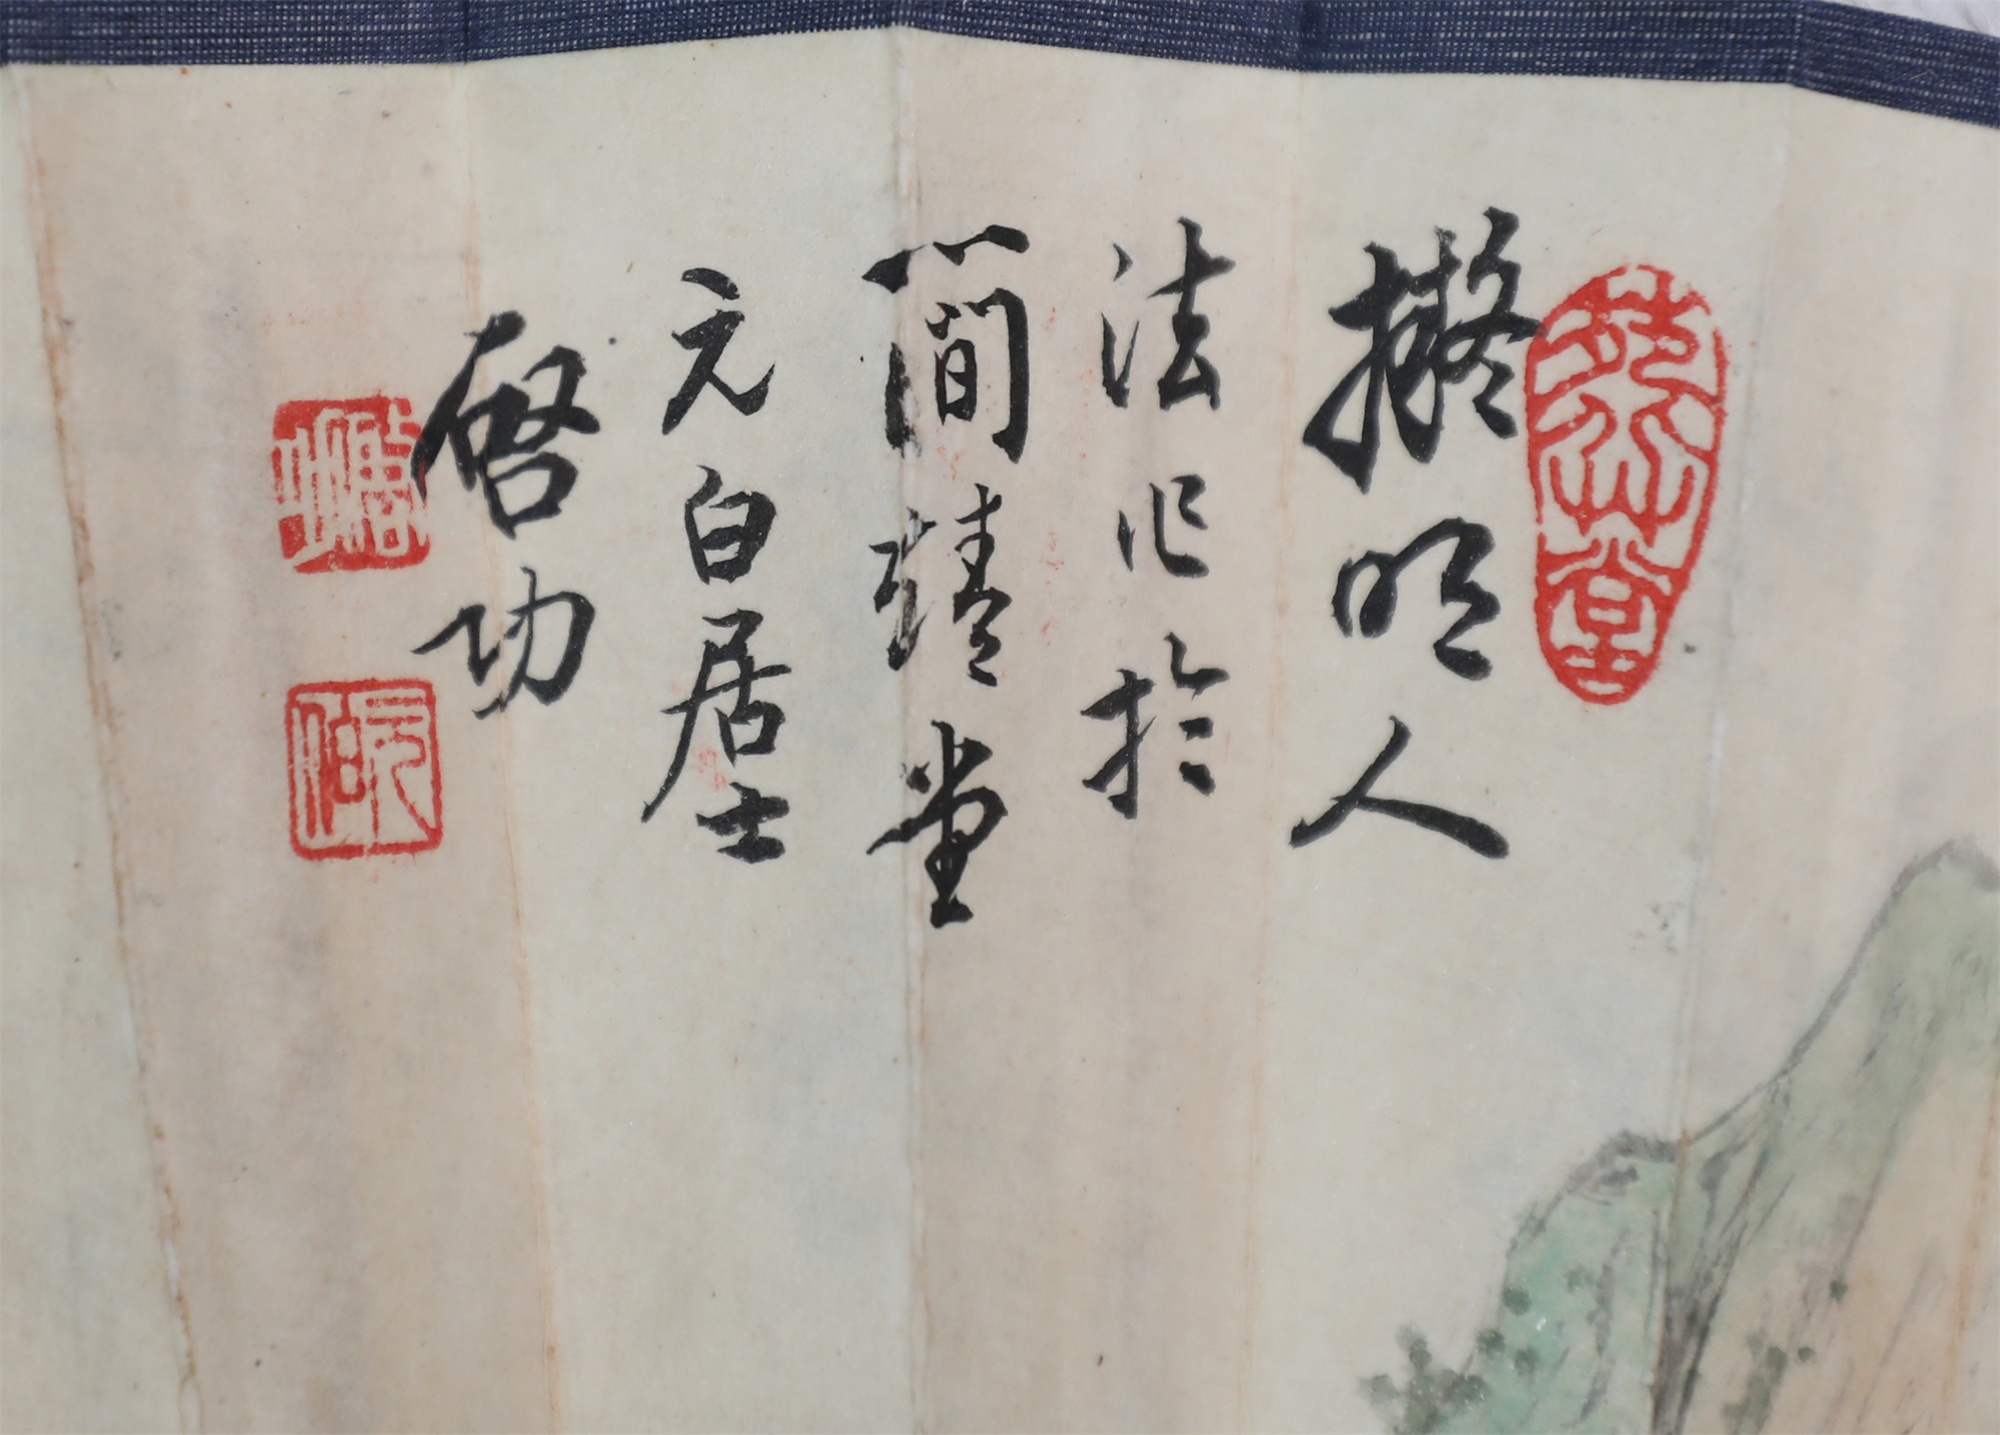 擬明人
法作於
簡靖堂
元白居士
啓功
元伯